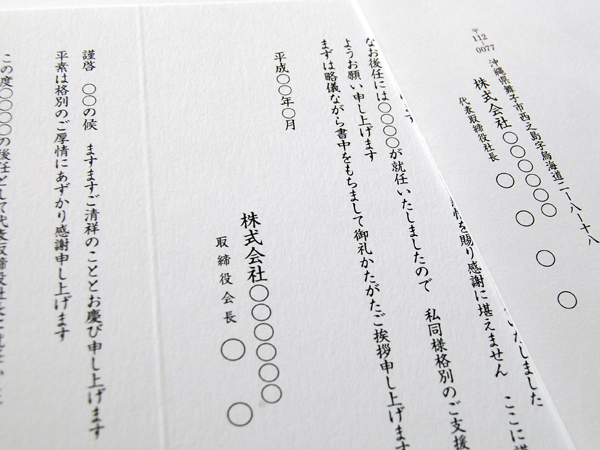 〒112-0077
沖縄県舞子市西之島字鳥海道二ー八ー十八
株式会社〇〇〇〇〇〇
代表取締役社長 〇 〇 〇 〇
いたしました
情を賜り感謝に堪えません ここに謹
なお後任には〇〇〇〇が就任いたしましたので 私同様格別のご支援
ようお願い申し上げます
まずは略儀ながら書中をもちまして御礼かたがたご挨拶申し上げます
平成〇〇年〇月
株式会社〇〇〇〇〇〇
取締役会長 〇 〇
謹啓 〇〇の候 ますますご清祥のこととお慶び申し上げます
平素は格別のご厚情にあずかり感謝申し上げます
この度〇〇〇〇の後任として代表取締役社長に